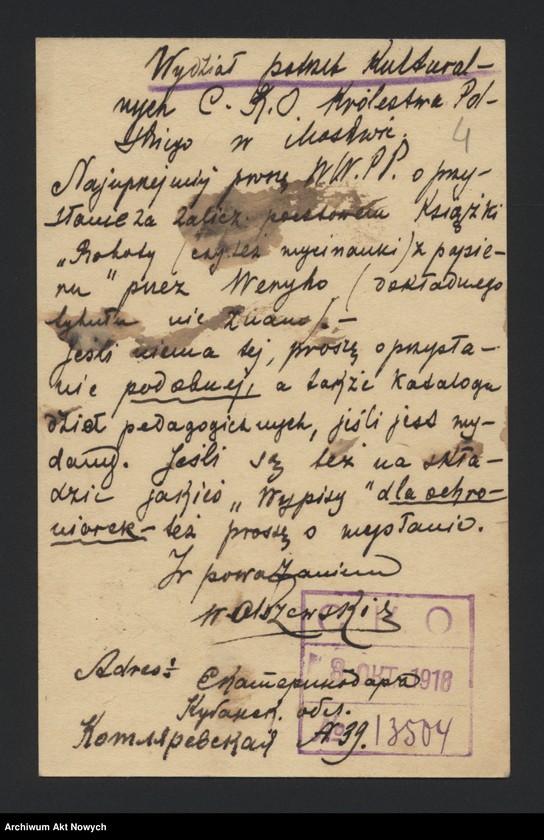 Wydział potrzeb Kultural-
nych C. K. O. Królestwa Pol-
skiego w Moskwie.
4
Najuprzejmiej proszę WW.PP. o przy-
słanie za zalicz. pocztowem Książki
„Roboty (czy też wycinanki) z papie-
ru" przez Weryho (dokładnego
tytułu nie znam). —
Jeśli niema tej, proszę o przysła-
nie podobnej, a także katalogu
dzieł pedagogicznych, jeśli jest wy-
dany. Jeśli są też na skła-
dzie jakieś „Wypisy" dla ochro-
niarek - też proszę o wysłanie.
Z poważaniem
W. Olszewski
Ц К О
8 ОКТ 1918
№ 13504
Adres:
Екатеринодаръ
Кубанск. обл.
Котляревская № 39.
Archiwum Akt Nowych